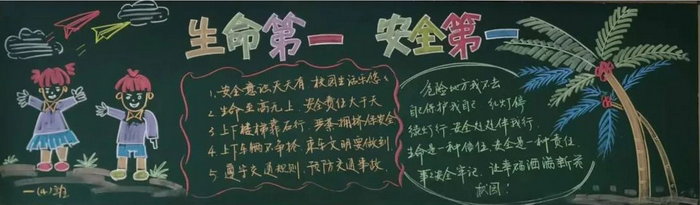 生命第一 安全第一
1.安全意识天天有 校园生活乐悠悠
2.生命至高无上,安全责任大于天
3.上下楼梯靠右行,严禁拥挤保安全
4.上下车辆不争抢,乘车文明要做到
5.遵守交通规则,预防交通事故.
危险地方我不去
自我保护我自己 红灯停
绿灯行 安全处处伴我行
生命是一种信仰,安全是一种责任
事事安全牢记,让幸福洒满新英
校园!
一(4)班